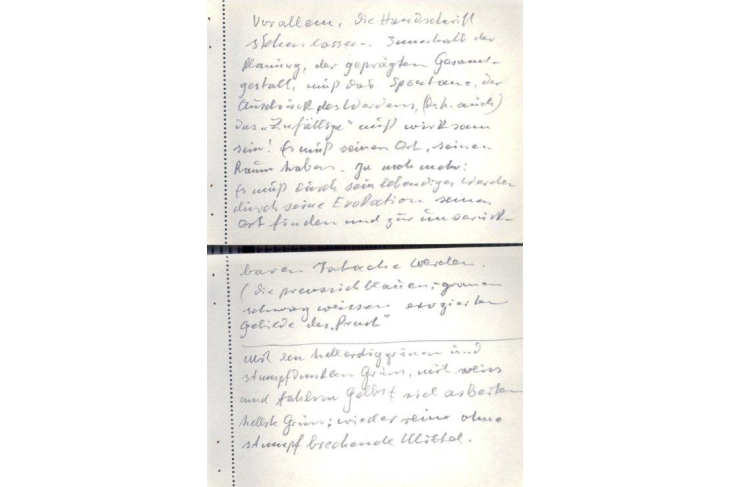 Vor allem, die Handschrift
stehen lassen. Innerhalb der
Planung, der geprägten Gesamt-
gestalt, muß das Spontane, der
Ausdruck des Werdens, (d.h. auch)
das „Zufällige" muß wirksam
sein! Es muß seinen Ort, seinen
Raum haben. Ja noch mehr:
Es muß durch sein lebendiges Werden
durch seine Evokation seinen
Ort finden und zur unverrück-
baren Tatsache werden.
(die preussischblauen, grauen
schwarz weissen evozierten
Gebilde des „Proust"
Mit den hellerdiggrünen und
stumpfdunklen Grüns, mit weiss
und fahlem Gelb viel arbeiten
hellste Grüns; wieder reine ohne
stumpf brechende Mittel.